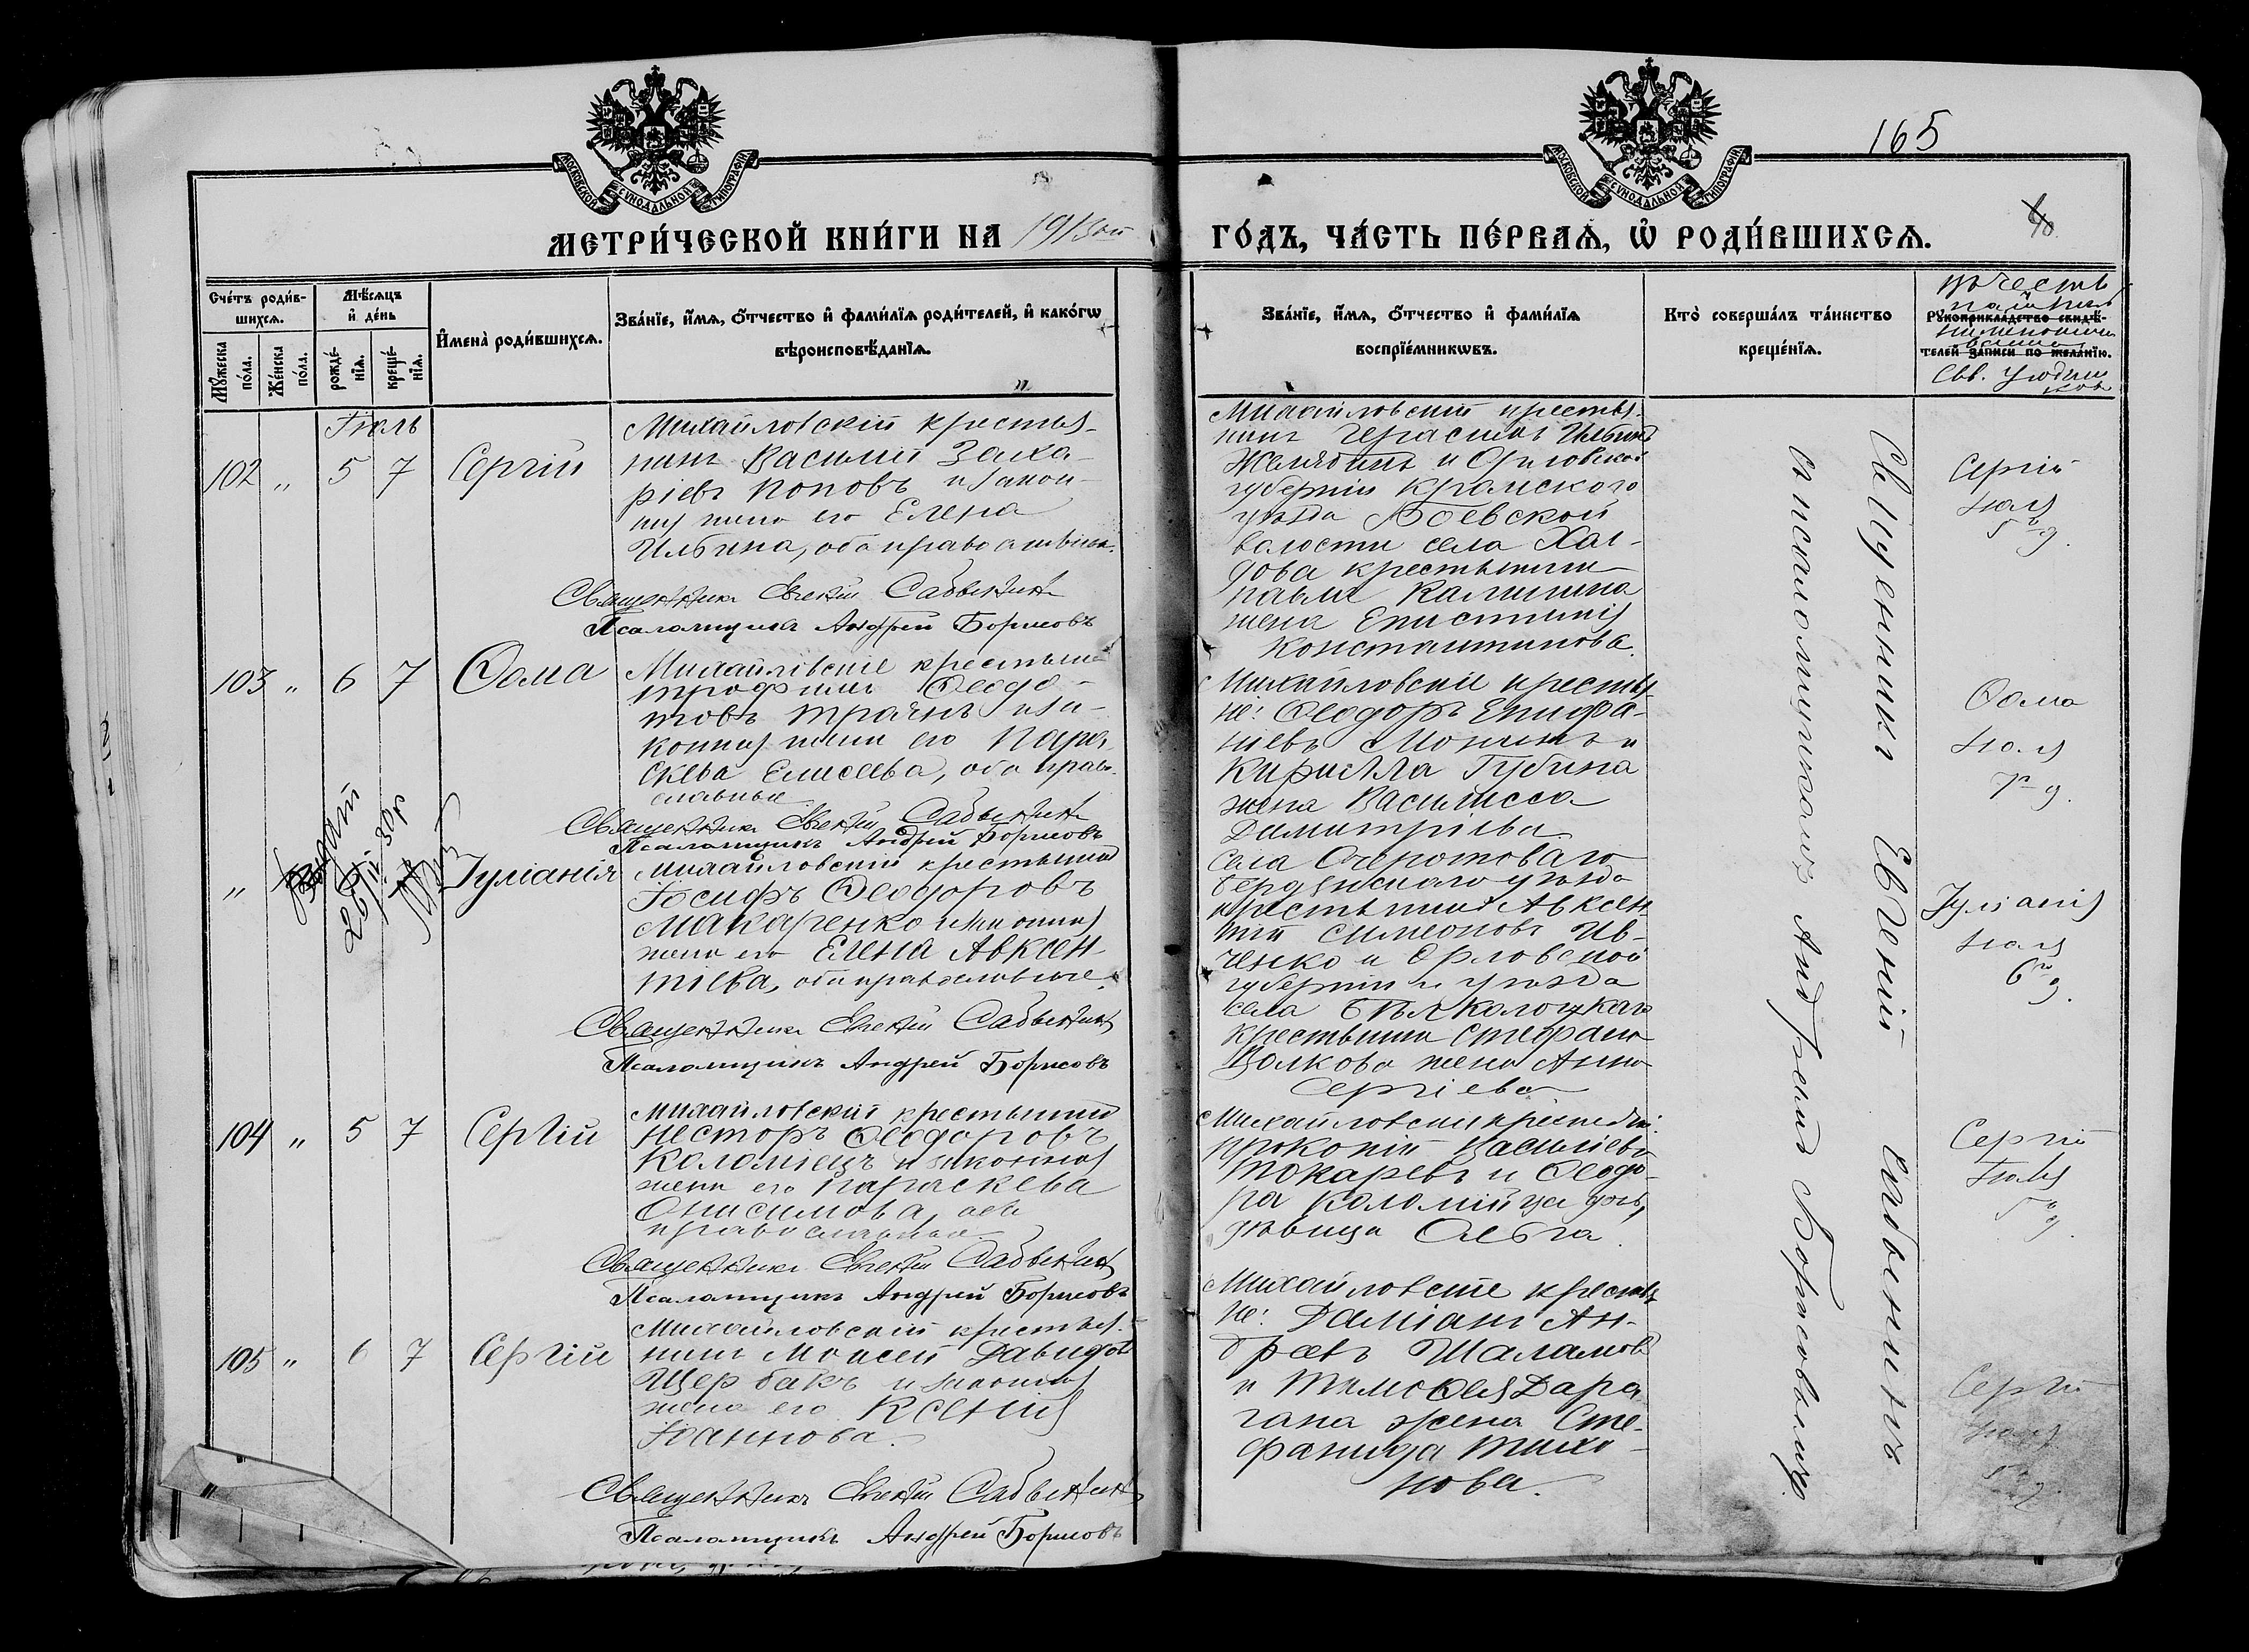 МОСКОВСКОЙ СѴНОДАЛЬНОЙ ТИПОГРАФІИ
МОСКОВСКОЙ СѴНОДАЛЬНОЙ ТИПОГРАФІИ
165
МЕТРИ́ЧЕСКОЙ КНИ́ГИ НА 1913 ой
ГО́ДЪ, ЧА́СТЬ ПЕ́РВАѦ, Ѡ҆ РОДИ́ВШИХСѦ.
Сче́тъ роди́в-
шихсѧ.
Мꙋ́жеска по́ла.
Же́нска по́ла.
Мѣ́сѧцъ
и҆ де́нь
рожде́-
нїѧ.
креще́-
нїѧ.
И҆мена̀ роди́вшихсѧ.
Зва́нїе, и҆́мѧ, ѻ҆́тчество и҆ фами́лїѧ роди́телей, и҆ како́гѡ
вѣроисповѣ́данїѧ.
Зва́нїе, и҆́мѧ, ѻ҆́тчество и҆ фами́лїѧ
воспрїе́мникѡвъ.
Кто̀ соверша́лъ та́инство
креще́нїѧ.
Рꙋкоприкла́дство свидѣ́-
телей за́писи по жела́нїю.
въ честь
Свв. угодни
ковъ
Іюль
102 " 5 7 Сергій
Михайловскій крестья-
нинъ Василій Заха-
ріевъ Поповъ и закон-
ная жена его Елена
Ильина, оба православные.
Священникъ Евгеній
Псаломщикъ Андрей Борисовъ
Михайловскій крестья-
нинъ Герасимъ Ильинъ
и Орловской
губерніи Кромского
уѣзда Боевской
волости села Хал-
дова крестьянина
Павла Калинина
жена Епистимія
Константинова.
Сергій
Іюля
5го д.
103 " 6 7 Ѳома
Михайловскіе крестьяне
Трофимъ Ѳеодо-
товъ и за-
конная жена его Пара-
скева Елисеева, оба право-
славные
Священникъ Евгеній
Псаломщикъ Андрей Борисовъ
Михайловскіе крестья-
не: Ѳеодоръ Епифа-
ніевъ и
Кирилла Губина
жена Василисса
Димитріева
Ѳома
Іюля
7го д.
" Іуліанія
Михайловскій крестьянинъ
Іосифъ Ѳеодоровъ
Макаренко и законная
жена его Елена Авксен-
тіева, оба православные.
Священникъ Евгеній
Псаломщикъ Андрей Борисовъ
села Очеретоваго
Бердянскаго уѣзда
крестьянинъ Авксен
тій Симеоновъ Ив-
ченко и Орловской
губерніи и уѣзда
села
крестьянина Стефана
Волкова жена Анна
Сергіева
Іуліанія
Іюля
6го д.
104 " 5 7 Сергій
Михайловскій крестьянинъ
Несторъ Ѳеодоровъ
Коломіецъ и законная
жена его Параскева
Онисимова, оба
православные
Священникъ Евгеній
Псаломщикъ Андрей Борисовъ
Прокопій Василіевъ
Токаревъ и Ѳеодо-
ра Коломійца дочь,
дѣвица Ольга.
Сергій
Іюля
5го д.
105 " 6 7 Сергій
Михайловскій крестья-
нинъ Моисей Давидовъ
Щербакъ и законная
жена его Ксенія
Іоаннова.
Священникъ Евгеній
Псаломщикъ Андрей Борисовъ
Михайловскіе крестья
не: Даміанъ Ан-
дреевъ Шаламовъ
и Тимоѳея Дара
гана жена Сте-
фанида Тихо-
нова.
Сергій
Іюля
5го д.
Священникъ Евгеній
съ псаломщикомъ Андреемъ Борисовымъ